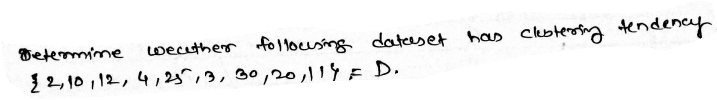 Determine wecither following dataset has clustering tendency
{2,10,12, 4,25,3, 30,20,11} = D.